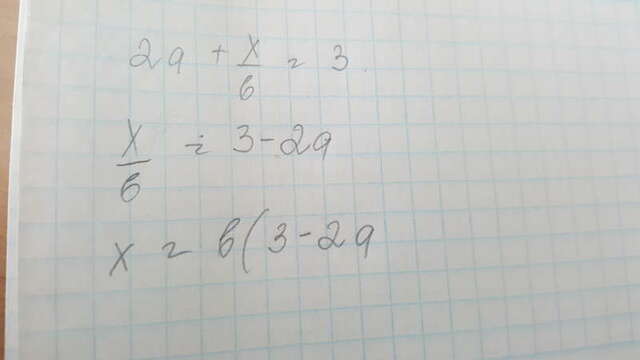 2a + x/6 = 3
x/6 = 3 - 2a
x = 6(3 - 2a